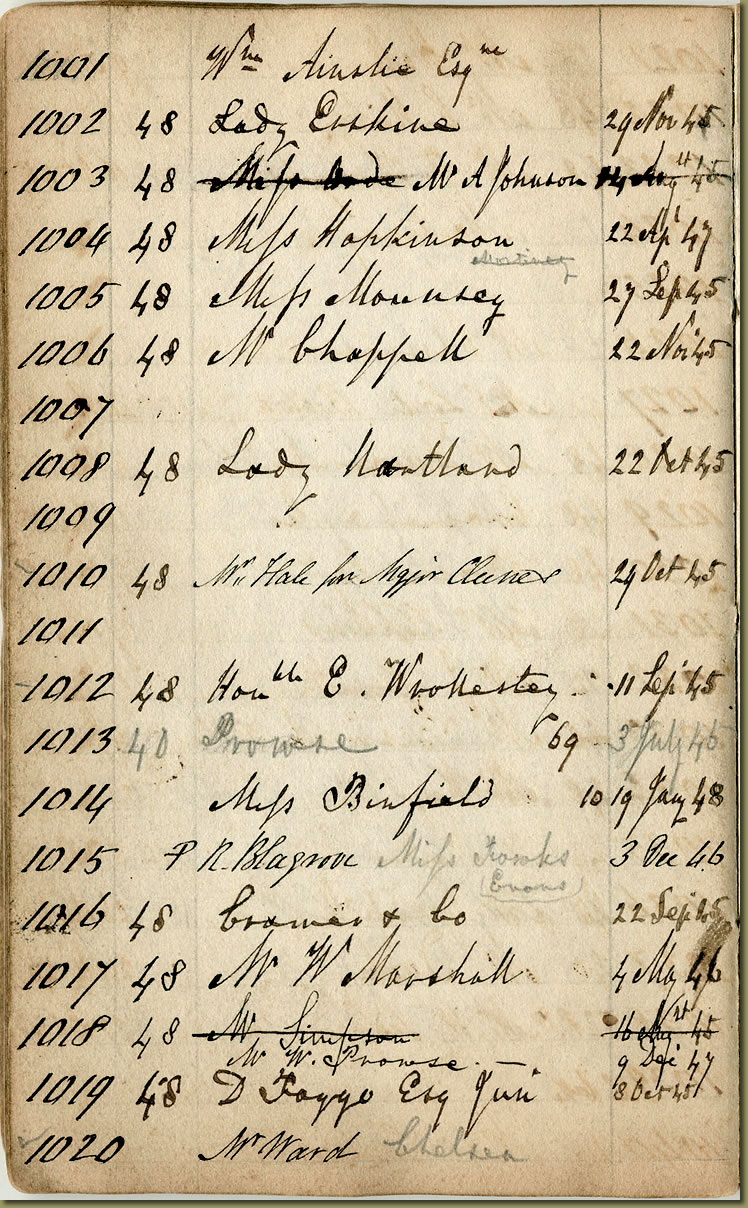 1001 Wm Ainslie Esqre
1002 48 Lady Erskine 29 Nov 45
1003 48 Miss Mr A Johnson 14 Aug 45
1004 48 Miss Hopkinson 22 Apl 47
1005 48 Miss Mounsey 27 Sep 45
1006 48 Mr Chappell 22 Nov 45
1007
1008 48 Lady Hartland 22 Oct 45
1009
1010 48 Mr Hale for Major 29 Oct 45
1011
1012 48 Honble E. Wrottesley 11 Sep 45
1013 40 Prowse 69 3 July 46
1014 Miss Binfield 10 19 Jany 48
1015 P R. Blagrove Miss Fowks 3 Dec 46
(Evans)
1016 48 Cramer & Co 22 Sep 45
1017 48 Mr W Marshall 4 May 46
1018 48 Mr Simpson 16 Augst 45
Mr W. Prowse — 9 Dec 47
1019 48 D Esq Juni 8 Oct 45
1020 Mr Ward Chelsea